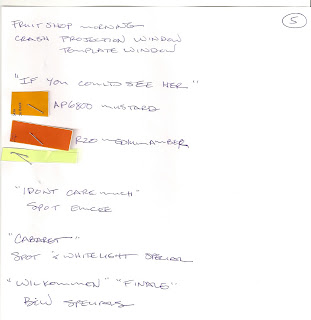 5
FRUIT SHOP MORNING
CRASH PROJECTION WINDOW
TEMPLATE WINDOW
"IF YOU COULD SEE HER"
AP6800 MUSTARD
R20 MEDIUM AMBER
"I DONT CARE MUCH"
SPOT EMCEE
"CABARET"
SPOT & WHITE LIGHT SPECIAL
"WILKOMMEN" "FINALE"
B&W SPECIALS